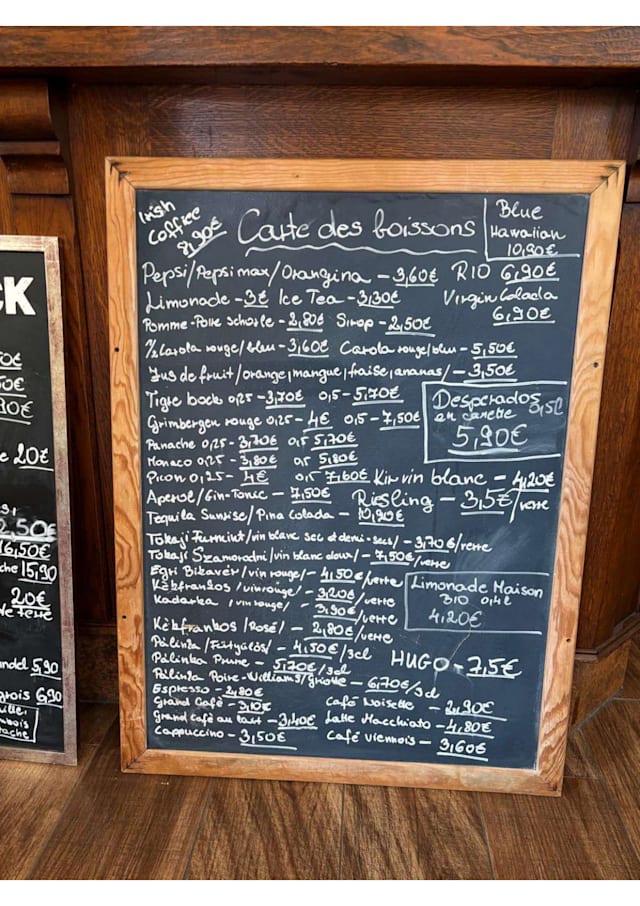 CK
50€
50€
90€
20€
2,50€
16,50€
15,90
20€
5,90
6,90
Irish
Coffice
8,90€
Carte des boissons
Blue
Hawaiian
10,90€
Pepsi/Pepsi max/Orangina - 3,60€
RIO 6,90€
Limonade - 3€ Ice Tea - 3,30€
Virgin Colada
6,90€
Pomme-Poire schorle - 2,80€ Sirop - 2,50€
½ Carola rouge/bleu - 3,60€ Carola rouge/bleu - 5,50€
Jus de fruit/orange, mangue, fraise, ananas/ - 3,50€
Tigre bock 0,25 - 3,70€ 0,5 - 5,70€
Desperados
en canette 0,5l
5,90€
Grimbergen rouge 0,25 - 4€ 0,5 - 7,50€
Panache 0,25 - 3,70€ 0,5 5,70€
Monaco 0,25 - 3,80€ 0,5 5,80€
Picon 0,25 - 4€ 0,5 7,60€
Kir vin blanc - 4,20€
Aperol/Gin-Tonic - 7,50€
Riesling - 3,5€/verre
Tequila Sunrise/Pina Colada - 10,90€
Tokaji Furmint/vin blanc sec et demi-sec/ - 3,70€/verre
Tokaji Szamorodni/vin blanc doux/ - 7,50€/verre
Egri Bikavér/vin rouge/ - 4,50€/verre
Kékfrankos/vin rouge/ - 3,20€/verre
Kadarka, vin rouge/ - 3,90€/verre
Limonade Maison
BIO 0,4l
4,20€
Kékfrankos/Rosé/ - 2,80€/verre
Pálinka/Fütyülős/ - 4,50€/3cl
Pálinka Prune - 5,70€/3cl
HUGO - 7,5€
Pálinka Poire-Williams/griotte - 6,70€/3cl
Espresso - 2,80€
Grand Café - 3,10€
Café Noisette - 2,90€
Grand café au lait - 3,40€
Latte Macchiato - 4,80€
Cappuccino - 3,50€
Café Viennois - 3,60€